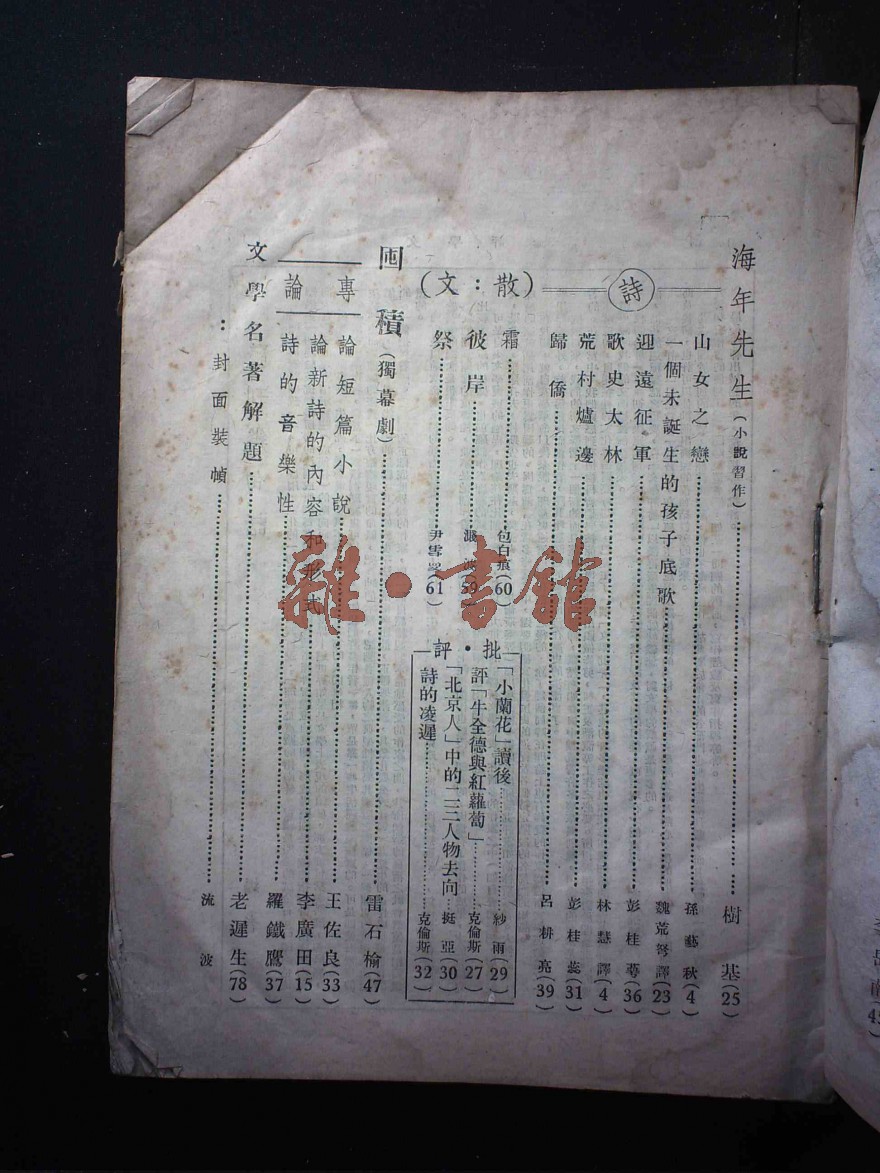 海年先生(小說習作)樹基(25)
詩
山女之戀 孫藝秋(4)
一個未誕生的孩子底歌 魏荒弩譯(23)
迎遠征軍 彭桂萼(36)
歌史太林 林慧譯(4)
荒村爐邊 彭桂蕊(31)
歸僑 呂耕亮(39)
(散:文)
霜 包白痕(60)
彼岸 波(59)
祭 尹雪(61)
批·評
「小蘭花」讀後 紗雨(29)
評「牛全德與紅蘿蔔」 克倫斯(27)
「北京人」中的二三人物去向 挺亞(30)
詩的凌遲 克倫斯(32)
囤積(獨幕劇)雷石榆(47)
專論
論短篇小說 王佐良(33)
論新詩的內容和形式 李廣田(15)
詩的音樂性 羅鐵鷹(37)
文學名著解題 老遲生(78)
:封面裝幀 流波
雜·書館